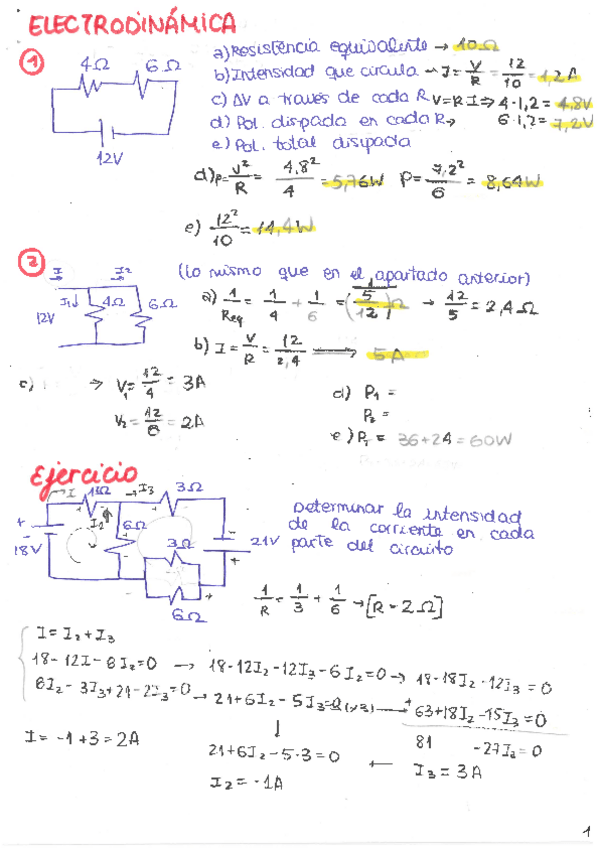 ELECTRODINÁMICA
① 4Ω 6Ω
12V
a) Resistencia equivalente → 10Ω
b) Intensidad que circula → I = V/R = 12/10 = 1,2A
c) ΔV a través de cada R V=R·I ⇒ 4·1,2 = 4,8V
d) Pot. disipada en cada R → 6·1,2 = 7,2V
e) Pot. total disipada
d) P = V²/R = 4,8²/4 = 5,76W P = 7,2²/6 = 8,64W
e) 12²/10 = 14,4W
② (Lo mismo que en el apartado anterior)
I I² I₁↓ 4Ω 6Ω
12V
a) 1/Req = 1/4 + 1/6 = (5/12) Ω → 12/5 = 2,4Ω
b) I = V/R = 12/2,4 → 5A
c) → V₁ = 12/4 = 3A
V₂ = 12/6 = 2A
d) P₁ =
P₂ =
e) P_T = 36+24 = 60W
Ejercicio
→I 12Ω →I₃ 3Ω
+ 18V I₂ 6Ω 3Ω 21V
6Ω
Determinar la intensidad
de la corriente en cada
parte del circuito
1/R = 1/3 + 1/6 → [R=2Ω]
I = I₂+I₃
18-12I-6I₂=0 → 18-12I₂-12I₃-6I₂=0 → 18-18I₂-12I₃=0
6I₂-3I₃+21-2I₃=0 → 21+6I₂-5I₃=0 (×3) → 63+18I₂-15I₃=0
81 -27I₃=0
I₃ = 3A
21+6I₂-5·3=0
I₂ = -1A
I = -1+3 = 2A
1